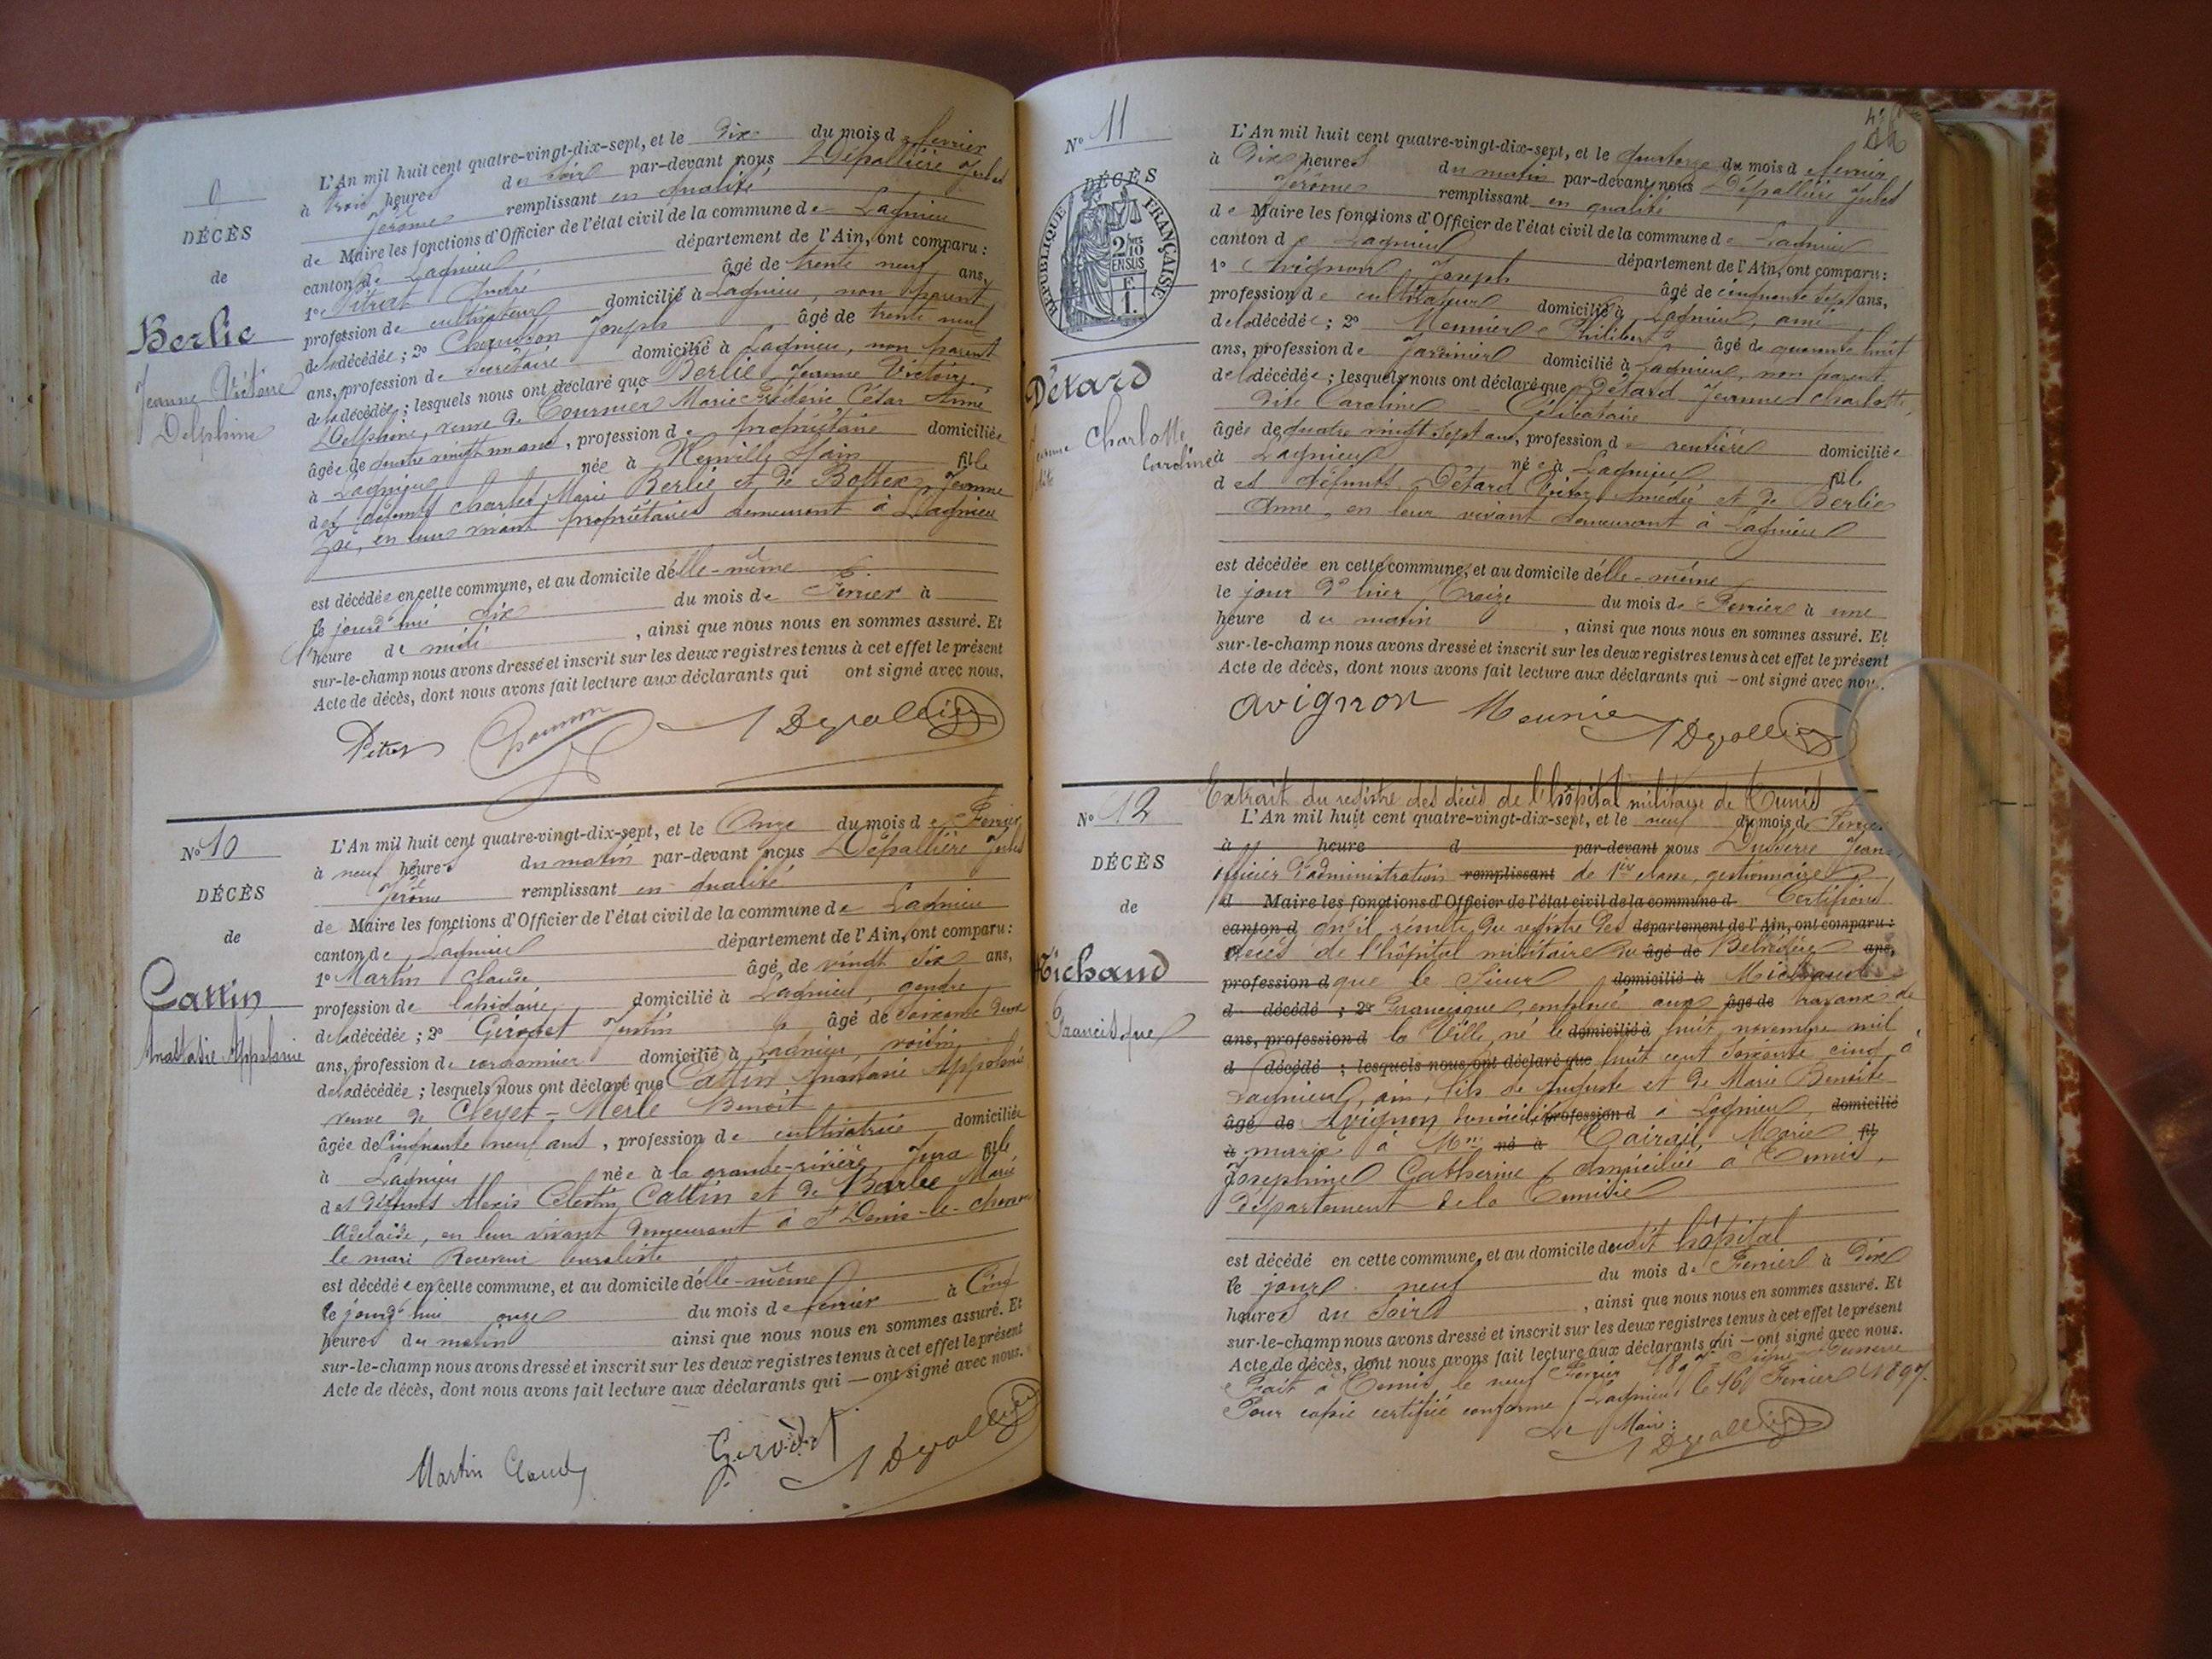 9
DÉCÈS
de
Berlie
Jeanne Victoire
Delphine
L'An mil huit cent quatre-vingt-dix-sept, et le dix du mois de février
à trois heures du soir par-devant nous Dépallière Jules
Jérôme remplissant en qualité
de Maire les fonctions d'Officier de l'état civil de la commune de Lagnieu
canton de Lagnieu département de l'Ain, ont comparu :
1° Pitrat André âgé de trente neuf ans,
profession de cultivateur domicilié à Lagnieu, non parent
de la décédée ; 2° Joseph âgé de trente neuf
ans, profession de secrétaire domicilié à Lagnieu, non parent
de la décédée ; lesquels nous ont déclaré que Berlie Jeanne Victoire
Delphine, veuve de Tournier Marie Frédéric César Aimé
âgée de quatre vingt un ans, profession de propriétaire domiciliée
à Lagnieu née à Neuville s/ain fille
des défunts Charles Marie Berlie et de Bottex Jeanne
Zoé, en leur vivant propriétaires demeurant à Lagnieu
est décédée en cette commune, et au domicile d'elle-même
le jourd'hui dix du mois de Février à
l'heure de midi, ainsi que nous nous en sommes assuré. Et
sur-le-champ nous avons dressé et inscrit sur les deux registres tenus à cet effet le présent
Acte de décès, dont nous avons fait lecture aux déclarants qui ont signé avec nous.
Pitrat J Depallière
N° 10
DÉCÈS
de
Cattin
Anastasie Appolonie
L'An mil huit cent quatre-vingt-dix-sept, et le Onze du mois de Février
à neuf heures du matin par-devant nous Dépallière Jules
Jérôme remplissant en qualité
de Maire les fonctions d'Officier de l'état civil de la commune de Lagnieu
canton de Lagnieu département de l'Ain, ont comparu :
1° Martin Claude âgé de vingt six ans,
profession de lapidaire domicilié à Lagnieu, gendre
de la décédée ; 2° Girodet Justin âgé de soixante deux
ans, profession de cordonnier domicilié à Lagnieu, voisin
de la décédée ; lesquels nous ont déclaré que Cattin Anastasie Appolonie
veuve de Cleyet-Merle Benoit
âgée de Cinquante neuf ans, profession de cultivatrice domiciliée
à Lagnieu née à la grande-rivière Jura fille
des défunts Alexis Célestin Cattin et de Barlee Marie
Adelaide, en leur vivant demeurant à St Denis-le-
le mari Receveur buraliste
est décédée en cette commune, et au domicile d'elle-même
le jourd'hui onze du mois de février à Cinq
heures du matin ainsi que nous nous en sommes assuré. Et
sur-le-champ nous avons dressé et inscrit sur les deux registres tenus à cet effet le présent
Acte de décès, dont nous avons fait lecture aux déclarants qui — ont signé avec nous.
Martin Claude Girodet J Depallière
N° 11
DÉCÈS
RÉPUBLIQUE FRANÇAISE
2/10 EN SUS
F 1.
Détard
Jeanne Charlotte
dite Caroline
L'An mil huit cent quatre-vingt-dix-sept, et le quatorze du mois de février
à Dix heures du matin par-devant nous Dépallière Jules
Jérôme remplissant en qualité
de Maire les fonctions d'Officier de l'état civil de la commune de Lagnieu
canton de Lagnieu département de l'Ain, ont comparu :
1° Avignon Joseph âgé de cinquante sept ans,
profession de cultivateur domicilié à Lagnieu, ami
de la décédée ; 2° Meunier Philibert âgé de quarante huit
ans, profession de Jardinier domicilié à Lagnieu, non parent
de la décédée ; lesquels nous ont déclaré que Détard Jeanne Charlotte
dite Caroline - Célibataire
âgée de quatre vingt sept ans, profession de rentière domiciliée
à Lagnieu née à Lagnieu fille
des défunts Détard Amédée et de Berlie
Anne, en leur vivant demeurant à Lagnieu
est décédée en cette commune, et au domicile d'elle-même
le jour d'hier treize du mois de Février à une
heure du matin, ainsi que nous nous en sommes assuré. Et
sur-le-champ nous avons dressé et inscrit sur les deux registres tenus à cet effet le présent
Acte de décès, dont nous avons fait lecture aux déclarants qui — ont signé avec nous.
avignon Meunier J Depallière
N° 12
DÉCÈS
de
Michaud
Francisque
Extrait du registre des décès de l'hôpital militaire de Tunis
L'An mil huit cent quatre-vingt-dix-sept, et le neuf du mois de Février
à heure d par-devant nous Duverne Jean,
officier d'administration remplissant de 1ère classe, gestionnaire
d Maire les fonctions d'Officier de l'état civil de la commune d Certifions
canton d qu'il résulte du registre des département de l'Ain, ont comparu :
décès de l'hôpital militaire du âgé de Belvédère ans,
profession d que le Sieur domicilié à Michaud
d décédé ; 2° Francisque, employé aux âgé de travaux de
ans, profession d la Ville, né le domicilié à huit novembre mil
d décédé ; lesquels nous ont déclaré que huit cent soixante cinq à
Lagnieu, ain, fils de Auguste et de Marie Benoite
âgé de Avignon domicilié profession d à Lagnieu, domicilié
à marié à Mme né à Marie fil
Josephine Catherine domiciliée à Tunis,
département de la Tunisie
est décédé en cette commune, et au domicile dudit hôpital
le jour neuf du mois de Février à Dix
heures du Soir, ainsi que nous nous en sommes assuré. Et
sur-le-champ nous avons dressé et inscrit sur les deux registres tenus à cet effet le présent
Acte de décès, dont nous avons fait lecture aux déclarants qui — ont signé avec nous.
Fait à Tunis le neuf Février 1897 Signé Duverne
Pour copie certifiée conforme Lagnieu le 16 Février 1897.
Le Maire :
J Depallière